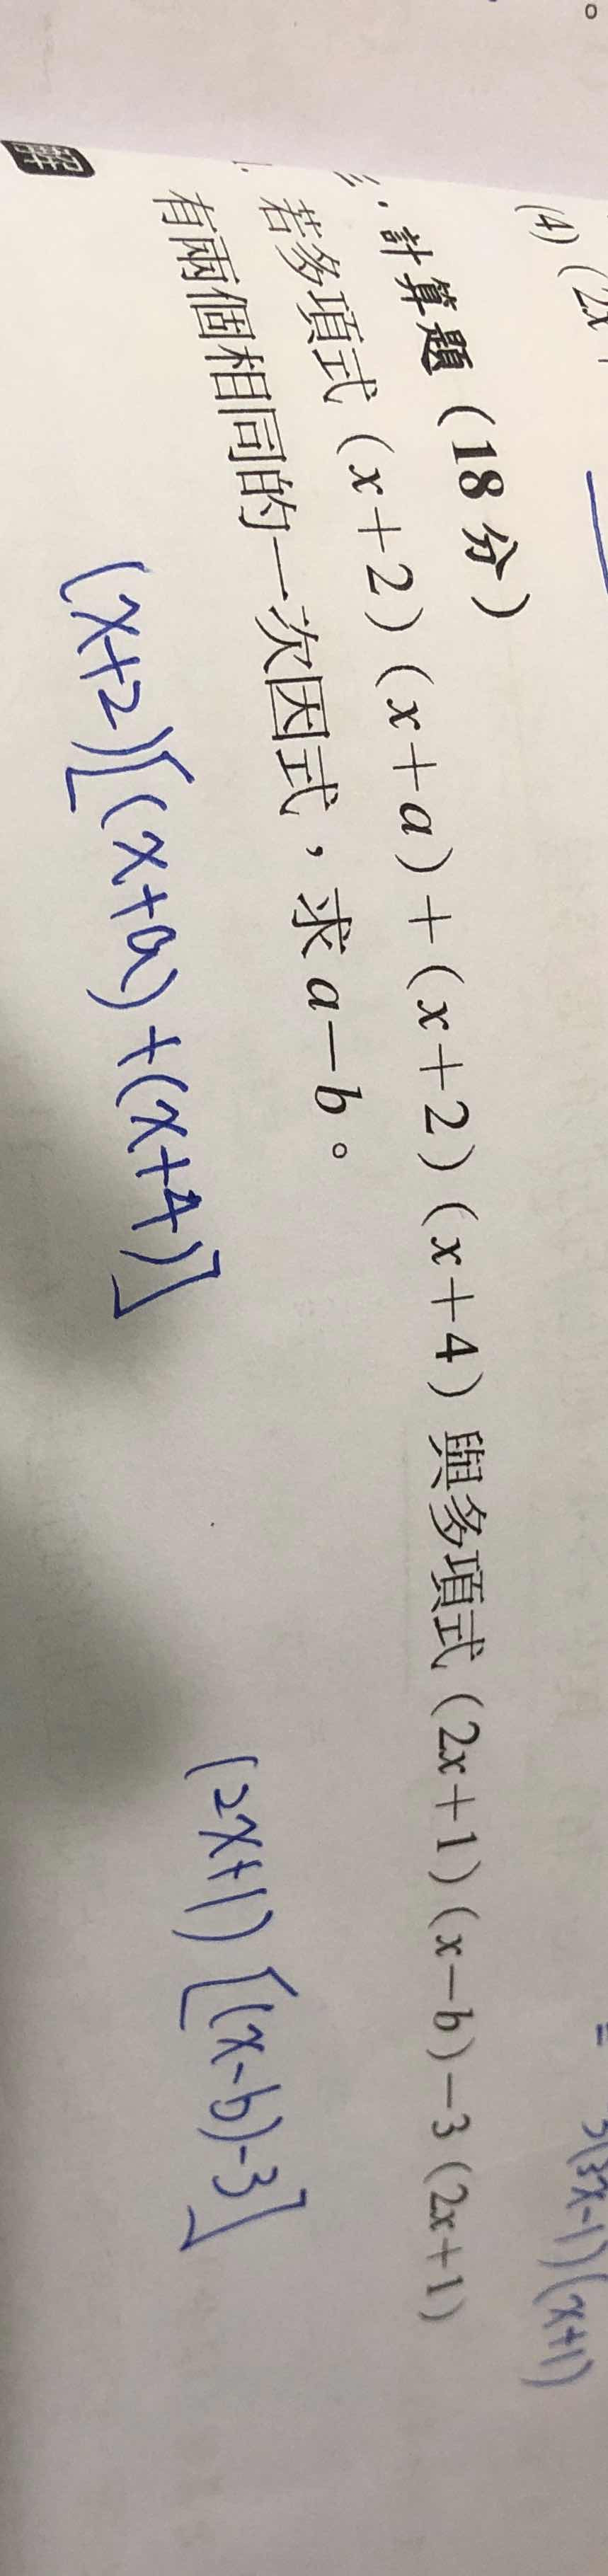 。
(4) (2x
計算題（18分）
若多項式（x＋2）（x＋a）＋（x＋2）（x＋4）與多項式（2x＋1）（x－b）－3（2x＋1）
有兩個相同的一次因式，求a－b。
解
(x+2)[(x+a)+(x+4)]
(2x+1)[(x-b)-3]
(3x-1)(x+1)